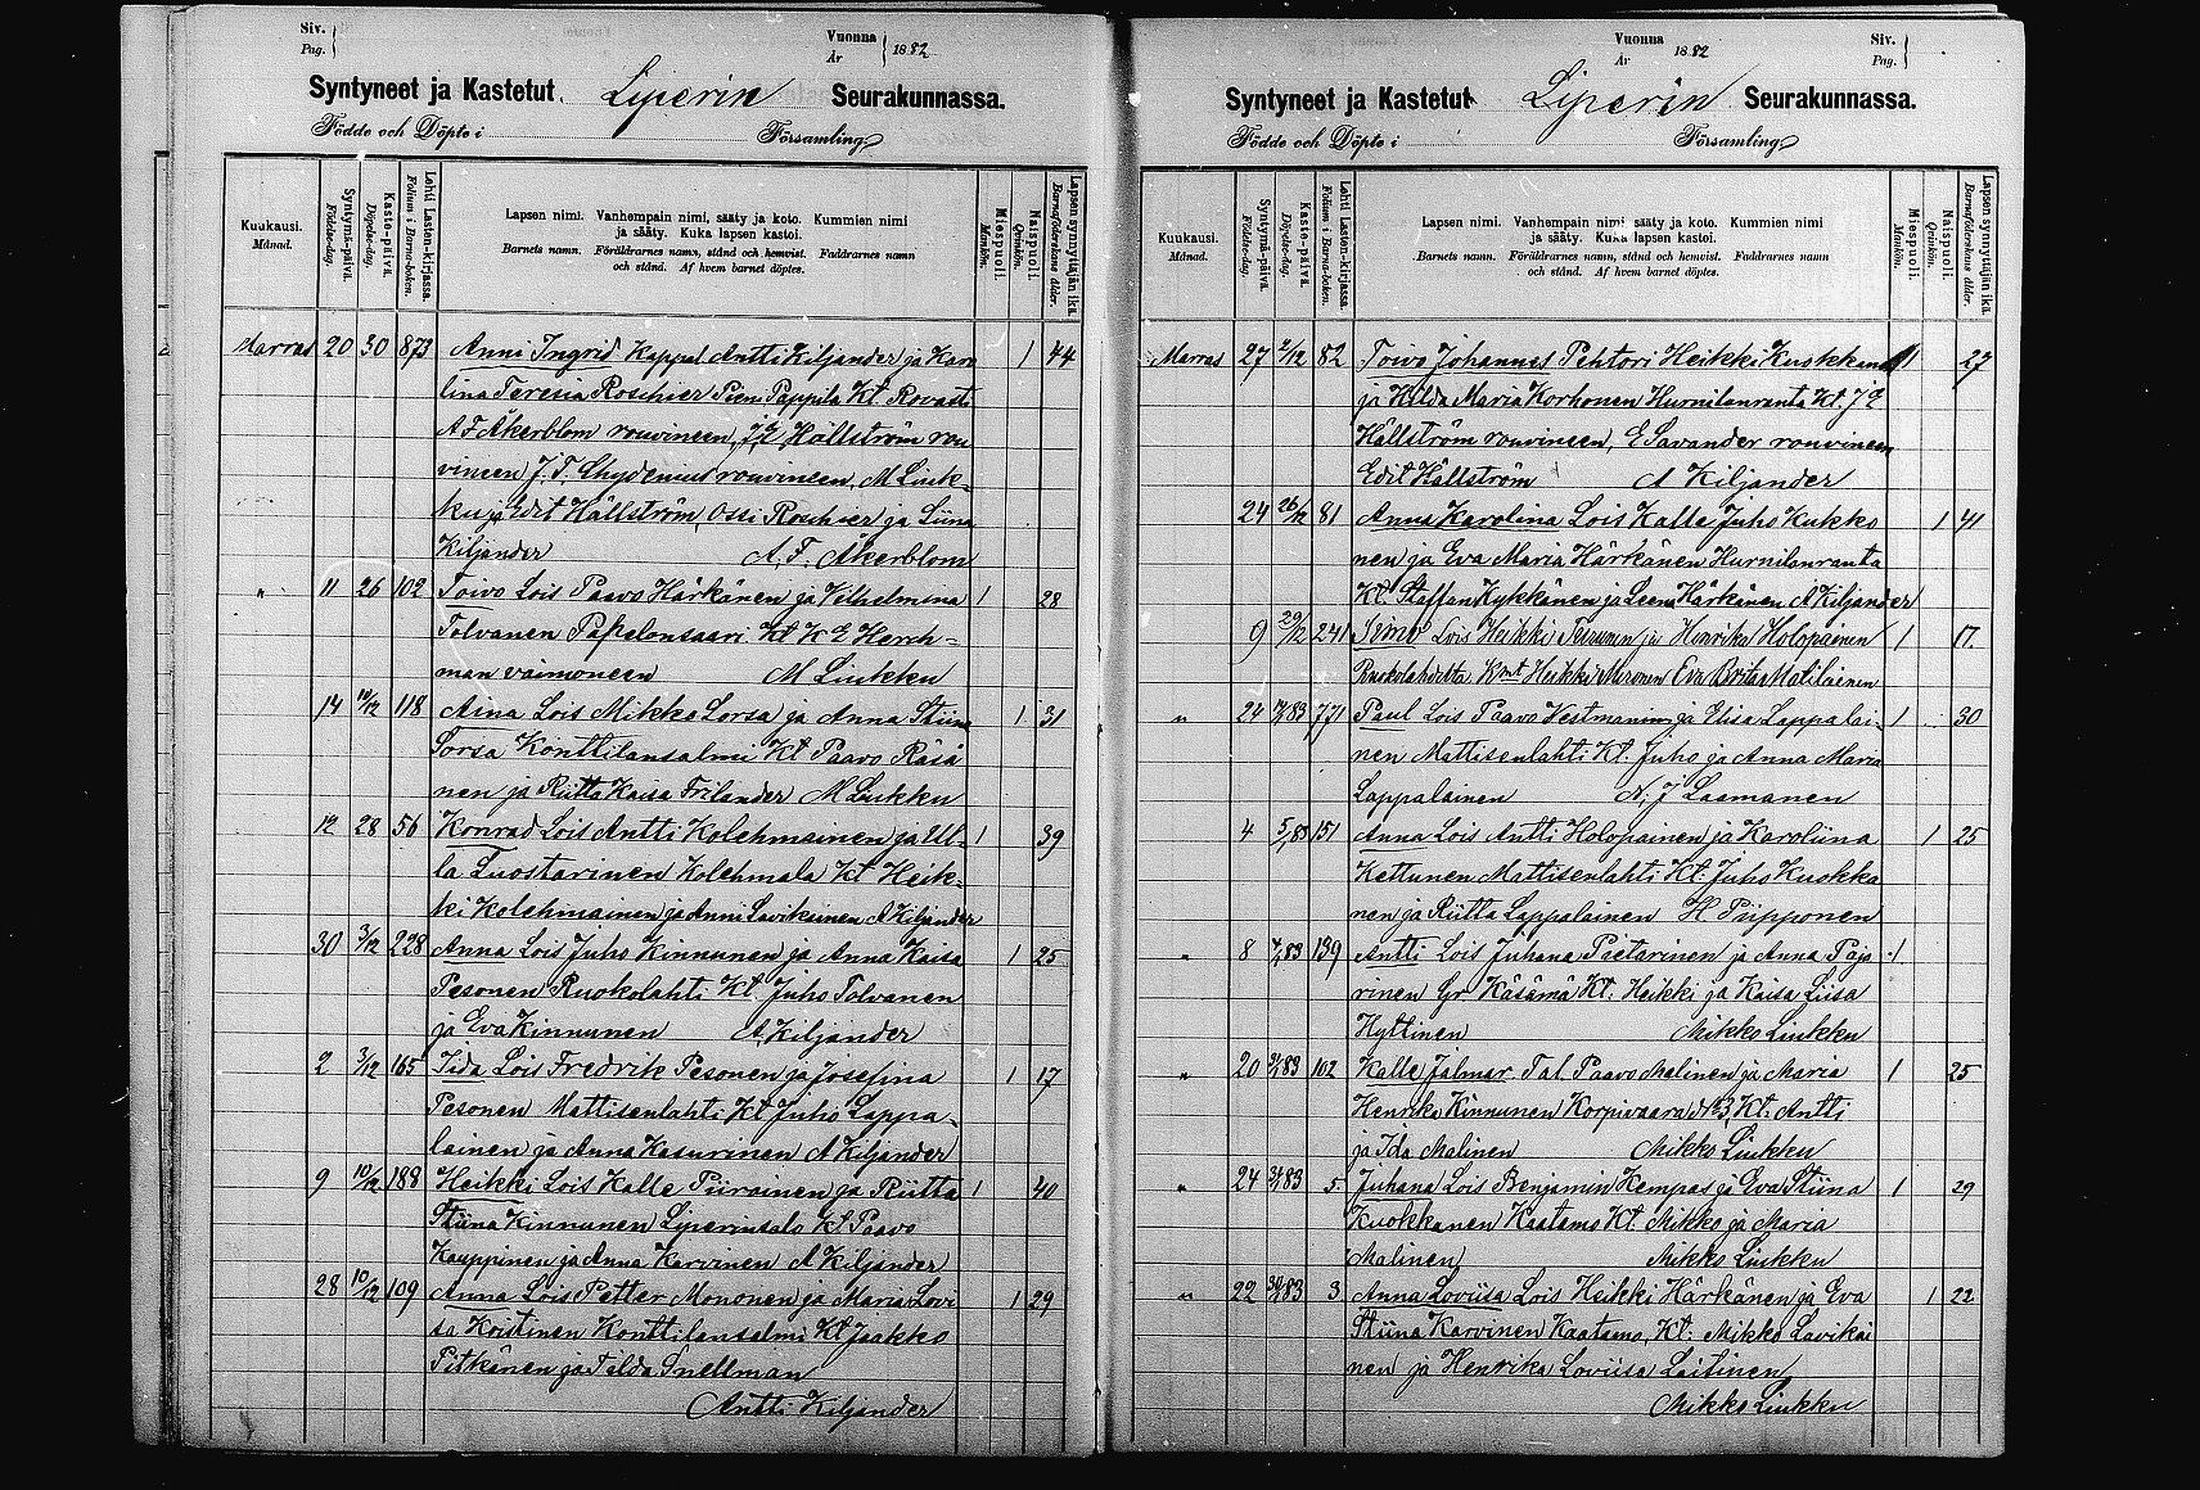 Siv.
Pag.
Vuonna
År
1882
Syntyneet ja Kastetut Liperin Seurakunnassa.
Födde och Döpte i Församling.
Kuukausi.
Månad.
Syntymä-päivä.
Födelse-dag.
Kaste-päivä.
Döpelse-dag.
Lehti Lasten-kirjassa.
Folium i Barna-boken.
Lapsen nimi. Vanhempain nimi, sääty ja koto. Kummien nimi
ja sääty. Kuka lapsen kastoi.
Barnets namn. Föräldrarnes namn, stånd och hemvist. Faddrarnes namn
och stånd. Af hvem barnet döptes.
Miespuoli.
Mankön.
Naispuoli.
Qvinkön.
Lapsen synnyttäjän ikä.
Barnaföderskans ålder.
Marras 20 30 873 Anni Ingrid Kappal. Antti Kiljander ja Karo 1 44
lina Teresia Roschier Pieni Pappila Kt. Rovasti
A F Åkerblom rouvineen, J E Hällström rou
vineen J. T. Chydenius rouvineen, M Liuk-
ku ja Edit Hällström, Ossi Roschier ja Liina
Kiljander A. F. Åkerblom
" 11 26 102 Toivo Lois Paavo Härkänen ja Vilhelmina 1 28
Tolvanen Papelonsaari Kt K E Hersh=
man vaimoneen M Liukku
14 10/12 118 Aina Lois Mikko Sorsa ja Anna Stiina 1 31
Sorsa Konttilansalmi Kt Paavo Räsä
nen ja Riitta Kaisa Frilander M Liukku
12 28 56 Konrad Lois Antti Kolehmainen ja Ul- 1 39
la Tuostarinen Kolehmala Kt Heik-
ki Kolehmainen ja Anni Lavikainen A Kiljander
30 3/12 228 Anna Lois Juho Kinnunen ja Anna Kaisa 1 25
Pesonen Ruokolahti Kt. Juho Tolvanen
ja Eva Kinnunen A. Kiljander
2 3/12 165 Iida Lois Fredrik Pesonen ja Josefina 1 17
Pesonen Mattisenlahti Kt Juho Lappa-
lainen ja Anna Kasurinen A Kiljander
9 10/12 188 Heikki Lois Kalle Piirainen ja Riitta 1 40
Stiina Kinnunen Liperinsalo Kt Paavo
Kauppinen ja Anna Karvinen A Kiljander
28 10/12 109 Anna Lois Petter Mononen ja Maria Lovi 1 29
sa Koistinen Konttilansalmi Kt Jaakko
Pitkänen ja Tilda Snellman
Antti Kiljander
Vuonna
År
1882
Siv.
Pag.
Syntyneet ja Kastetut Liperin Seurakunnassa.
Födde och Döpte i Församling.
Kuukausi.
Månad.
Syntymä-päivä.
Födelse-dag.
Kaste-päivä.
Döpelse-dag.
Lehti Lasten-kirjassa.
Folium i Barna-boken.
Lapsen nimi. Vanhempain nimi, sääty ja koto. Kummien nimi
ja sääty. Kuka lapsen kastoi.
Barnets namn. Föräldrarnes namn, stånd och hemvist. Faddrarnes namn
och stånd. Af hvem barnet döptes.
Miespuoli.
Mankön.
Naispuoli.
Qvinkön.
Lapsen synnyttäjän ikä.
Barnaföderskans ålder.
Marras 27 2/12 82 Toivo Johannes Pehtori Heikki Kuokkanen 1 27
ja Hilda Maria Korhonen Hurnilanranta Kt. J E
Hällström rouvineen, E Savander rouvineen
Edit Hällström A Kiljander
24 26/12 81 Anna Karolina Lois Kalle Juho Kukko 1 41
nen ja Eva Maria Härkänen Hurnilanranta
Kt. Staffan Kykkänen ja Leena Härkänen A Kiljander
9 29/12 241 Simo Lois Heikki ja Henrika Holopainen 1 17.
Ruokolahdelta. Kmt Heikki Mironen Eva Brita Matilainen
" 24 771 Paul Lois Paavo Vestmaninen ja Elisa Lappalai- 1 30
nen Mattisenlahti Kt. Juho ja Anna Maria
Lappalainen N. J Laamanen
4 151 Anna Lois Antti Holopainen ja Karoliina 1 25
Kettunen Mattisenlahti Kt: Juho Kuokka
nen ja Riitta Lappalainen H Piipponen
" 8 139 Antti Lois Juhana Pietarinen ja Anna Paja 1
rinen Gr Käsämä Kt: Heikki ja Kaisa Liisa
Hyttinen Mikko Liukku
" 20 102 Kalle Jalmar Tal. Paavo Malinen ja Maria 1 25
Henrika Kinnunen Korpivaara No 3, Kt: Antti
ja Ida Malinen Mikko Liukku
" 24 5 Juhana Lois Benjamin Kempas ja Eva Stiina 1 29
Kuokkanen Kaatamo Kt Mikko ja Maria
Malinen Mikko Liukku
" 22 3 Anna Loviisa Lois Heikki Härkänen ja Eva 1 22
Stiina Karvinen Kaatamo, Kt: Mikko Lavikai
nen ja Henrika Loviisa Laitinen
Mikko Liukku